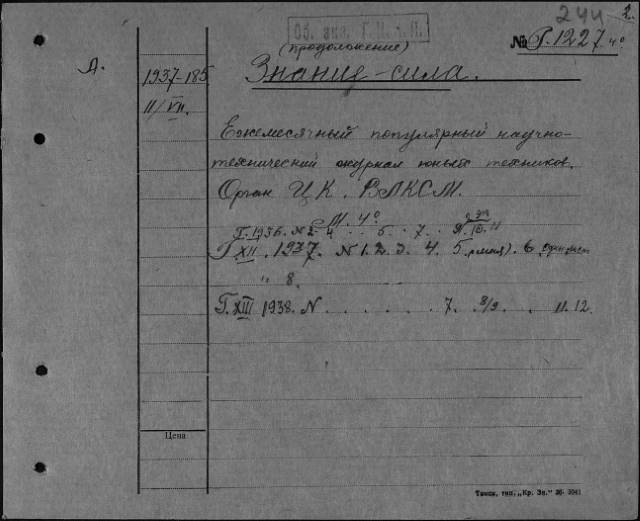 244
2.
Об. экз. Г.П.Б.Л.
(продолжение)
№ Г. 1227 4°
Д.
1937-185
11/VII.
Знание - сила.
Ежемесячный популярный научно-
технический журнал юных техников.
Орган ЦК. ВЛКСМ.
М. 4°
Г. 1936. N 2 - 4 . . 5 . . 7 . . 9. 10. 11
Г XII . 1937. N 1. 2. 3. 4. 5 6
" 8.
Г. XIII 1938. N . . . . . . 7 . 8/9 . . 11. 12.
Цена
Тамб. тип. „Кр. Зн." 36 3041